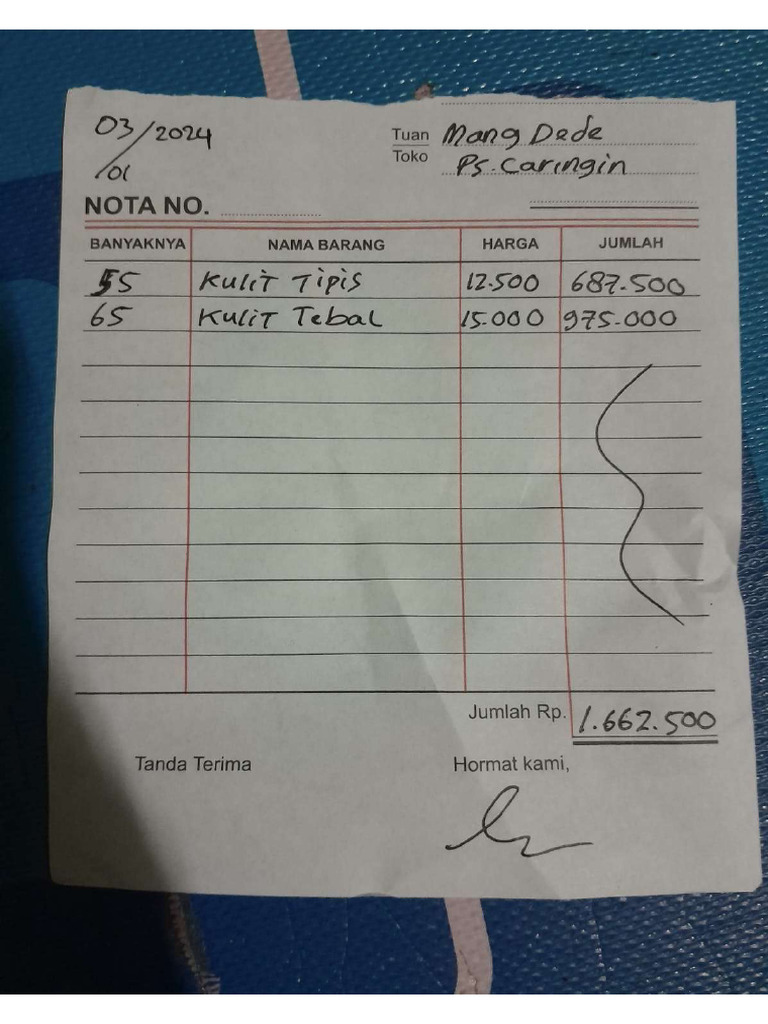 03/2024
/01
Tuan Mang Dede
Toko Ps. Caringin
NOTA NO.
BANYAKNYA NAMA BARANG HARGA JUMLAH
55 Kulit Tipis 12.500 687.500
65 Kulit Tebal 15.000 975.000
Jumlah Rp. 1.662.500
Tanda Terima Hormat kami,